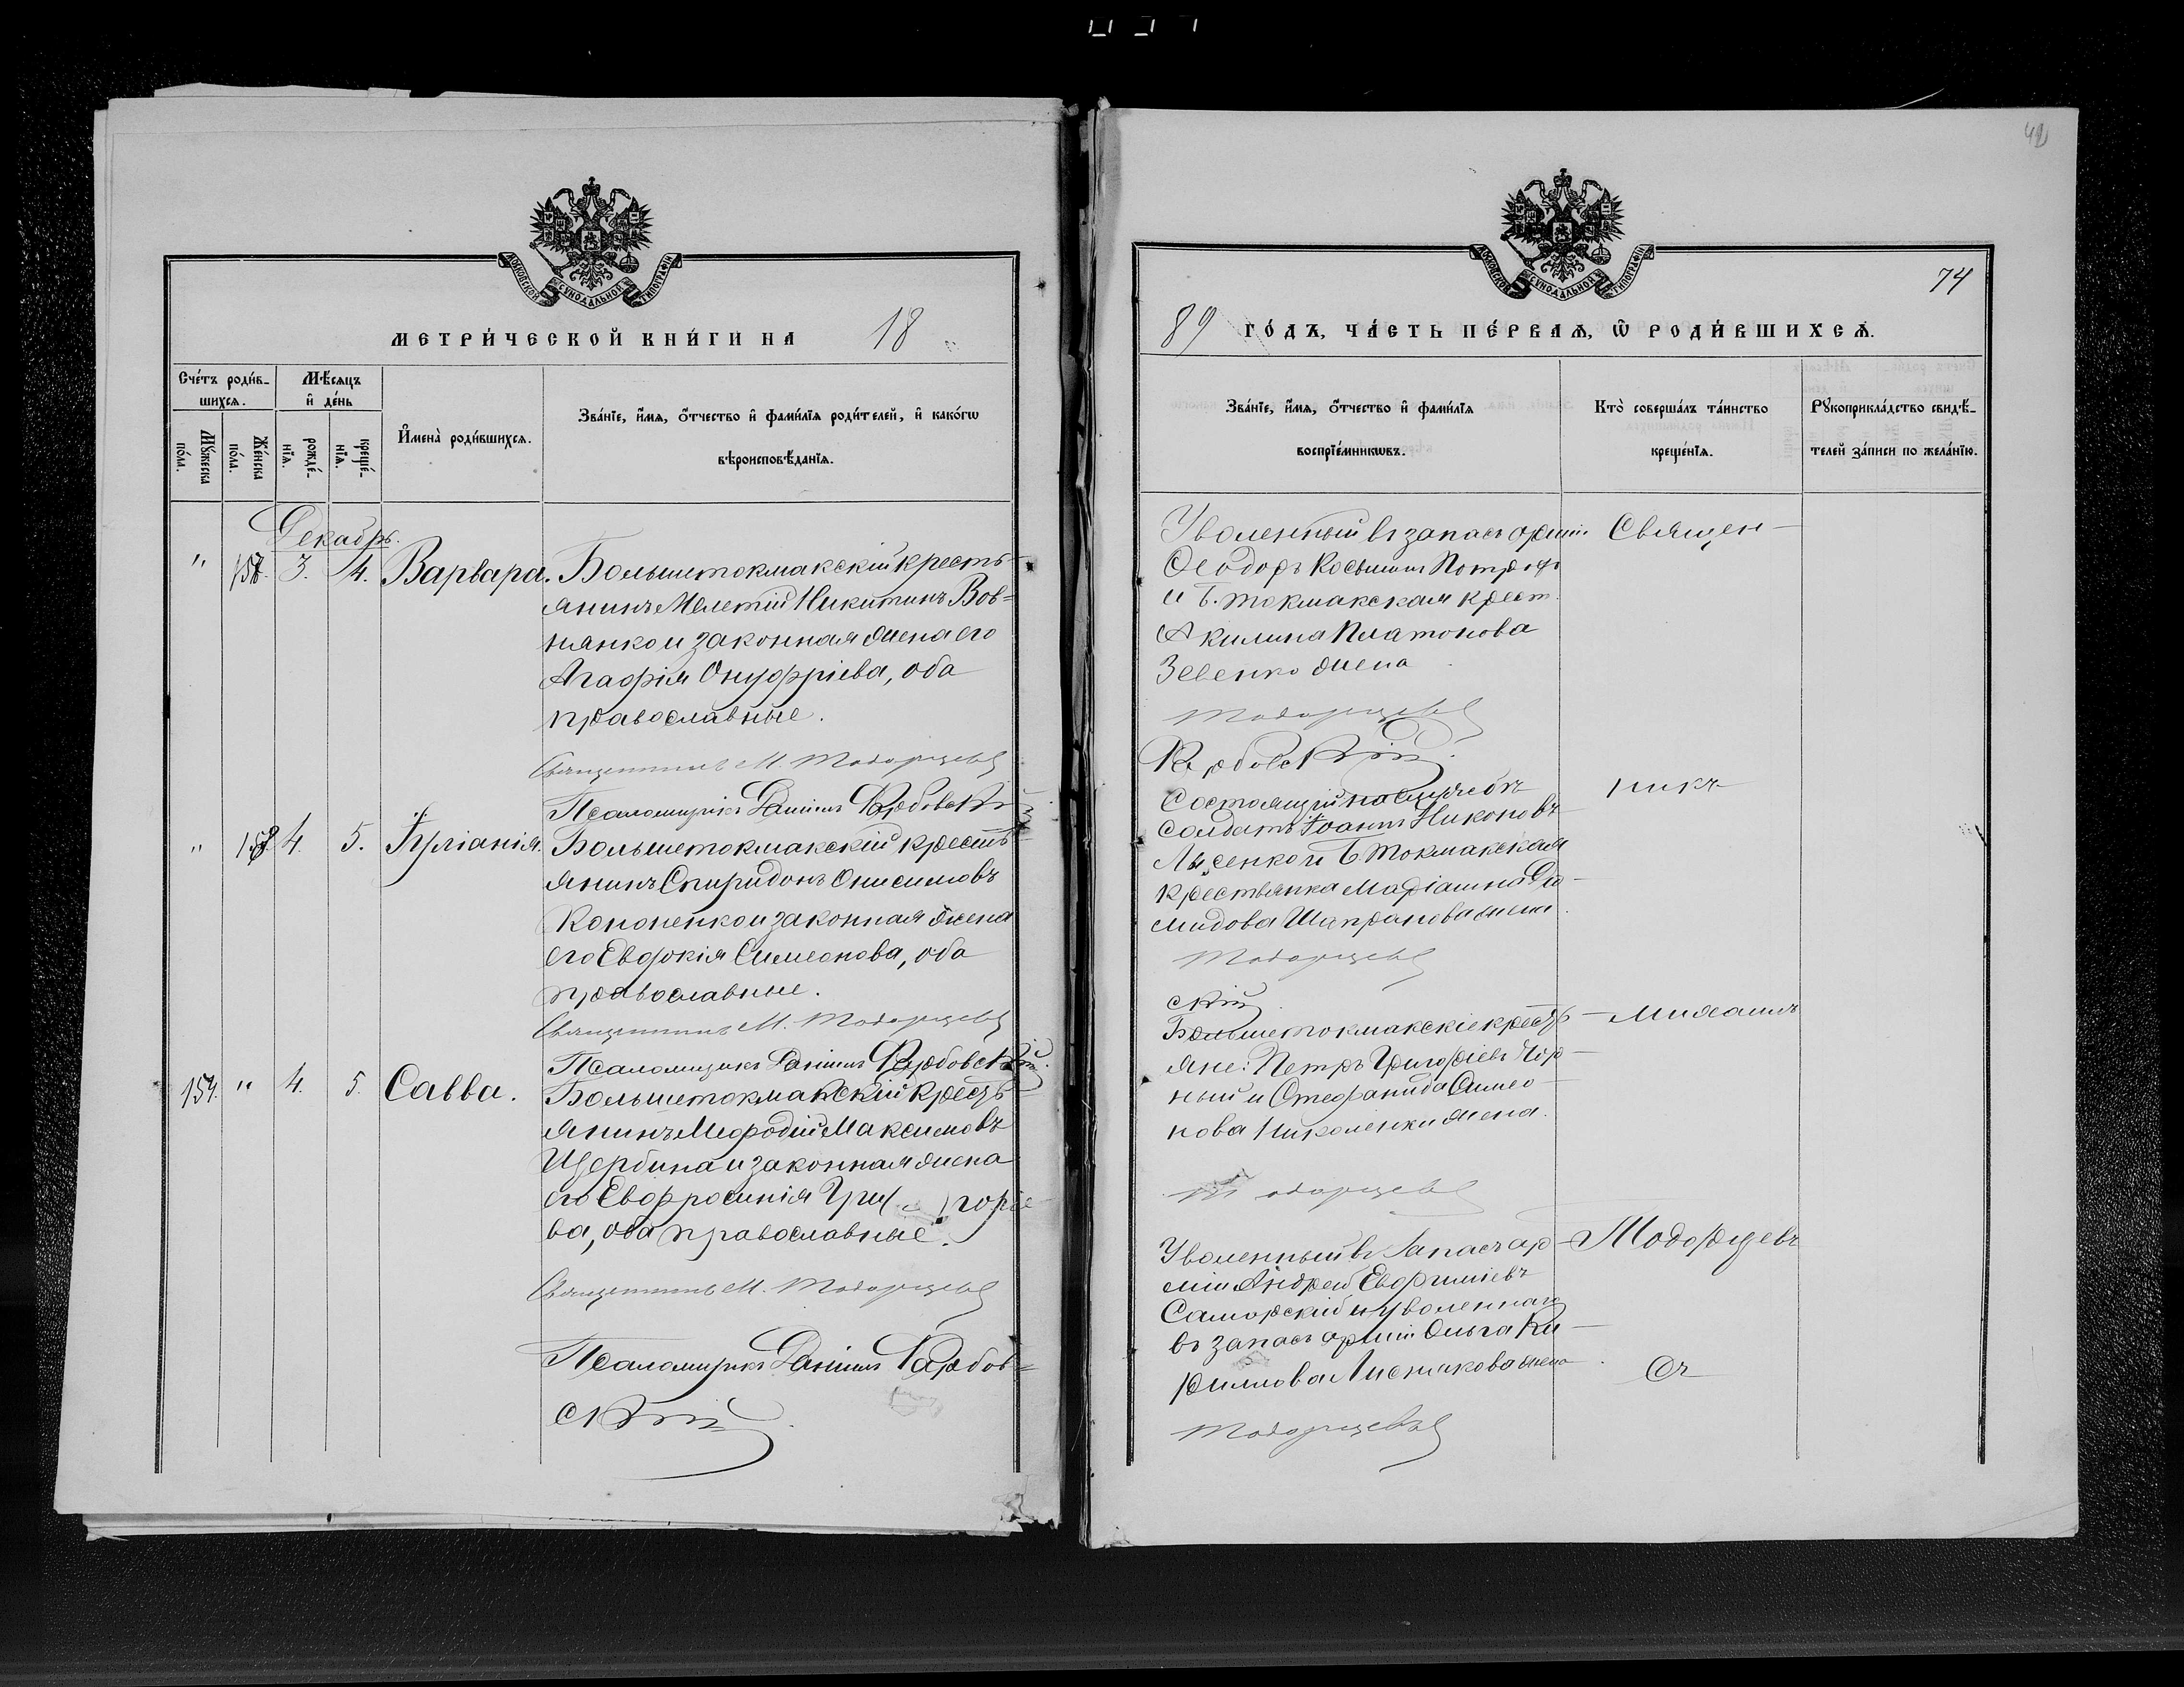 42
МОСКОВСКОЙ СУНОДАЛЬНОЙ ТИПОГРАФІИ
МЕТРИ́ЧЕСКОЙ КНИ́ГИ НА 18
Сче́тъ роди́в-
шихся.
Мѣ́сяцъ
и҆ де́нь
Мꙋ́жеска
по́ла.
Же́нска
по́ла.
рожде́-
нїя.
креще́-
нїя.
И҆мена̀ роди́вшихся.
Зва́нїе, и҆́мя, ѻ҆́тчество и҆ фами́лїя роди́телей, и҆ како́гѡ
вѣроисповѣ́данїя.
Декабрь.
" 3. 4. Варвара. Большетокмакскій кресть-
янинъ Мелетій Никитинъ Вов-
нянко и законная жена его
Агафія Онуфріева, оба
православные.
Священникъ М. Тодорцевъ
Псаломщикъ Даніилъ
" 158 4. 5. Іуліанія. Большетокмакскій кресть-
янинъ Спиридонъ Онисимовъ
Кононенко и законная жена
его Евдокія Симеонова, оба
православные.
Священникъ М. Тодорцевъ
Псаломщикъ Даніилъ
154. " 4. 5. Савва. Большетокмакскій кресть-
янинъ Меѳодій Максимовъ
Щербина и законная жена
его Евфросинія Григоріе-
ва, оба православные.
Священникъ М. Тодорцевъ
Псаломщикъ Даніилъ
скій
МОСКОВСКОЙ СУНОДАЛЬНОЙ ТИПОГРАФІИ
74
89 ГО́ДЪ, ЧА́СТЬ ПЕ́РВАѦ, Ѡ҆ РОДИ́ВШИХСѦ.
Зва́нїе, и҆́мя, ѻ҆́тчество и҆ фами́лїя
воспрїе́мникѡвъ.
Кто̀ соверша́лъ та́инство
креще́нїя.
Рꙋкоприкла́дство свидѣ́-
телей за́писи по жела́нїю.
Уволенный въ запасъ арміи Священ-
Ѳеодоръ Косьминъ
и Б. токмакская крест.
Акилина Платонова
Зевенко жена
Тодорцевъ
Состоящій на службѣ никъ
солдатъ Іоаннъ Никоновъ
Лысенко и Б. Токмакская
крестьянка Маріамна Дio-
мидова Шапранова жена.
Тодорцевъ
скій
Большетокмакскіе кресть- Михаилъ
яне: Петръ Григоріевъ Чор-
ный и Стефанида Симео-
нова Николенки жена.
Тодорцевъ
Уволенный въ запасъ ар- Тодорцевъ
міи Андрей Евфиміевъ
Саморскій и уволеннаго
въ запасъ арміи Ольга Ки-
риллова жена
Тодорцевъ